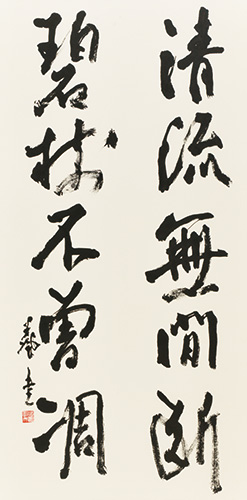 清流無間斷
碧樹不曾凋